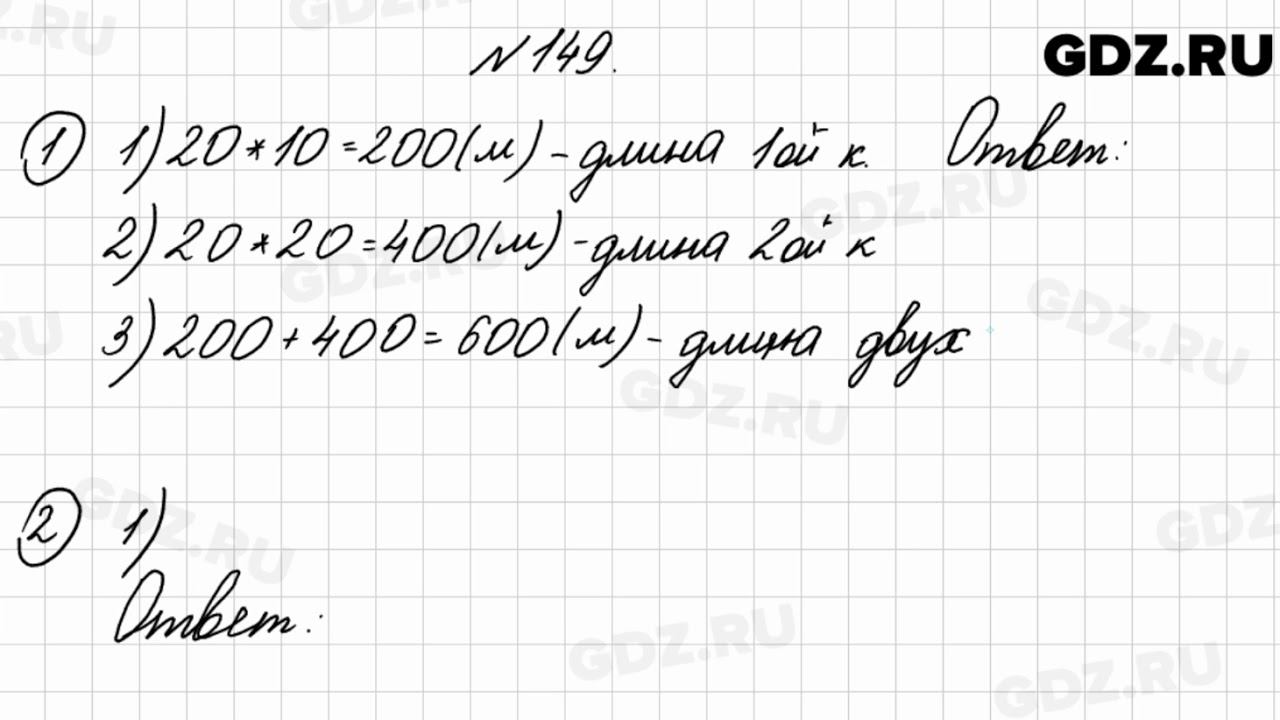 №149.
GDZ.RU
1 1) 20*10=200(м) - длина 1ой к. Ответ:
2) 20*20=400(м) - длина 2ой к
3) 200+400=600(м) - длина двух
2 1)
Ответ: